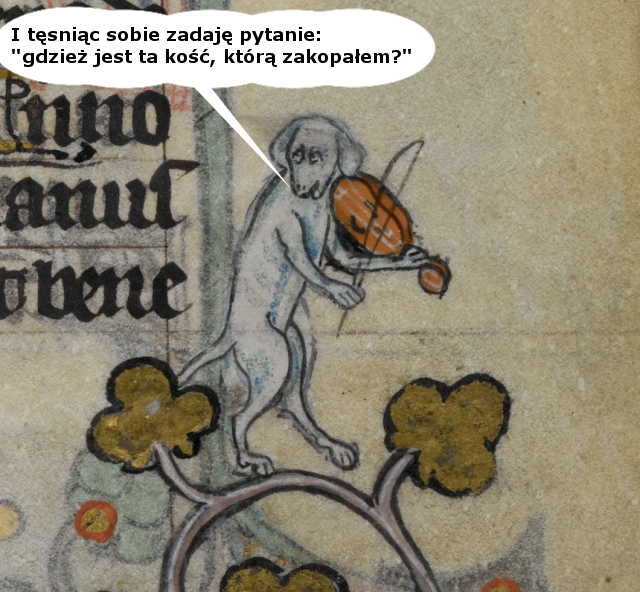 I tęsniąc sobie zadaję pytanie:
"gdzież jest ta kość, którą zakopałem?"
bene